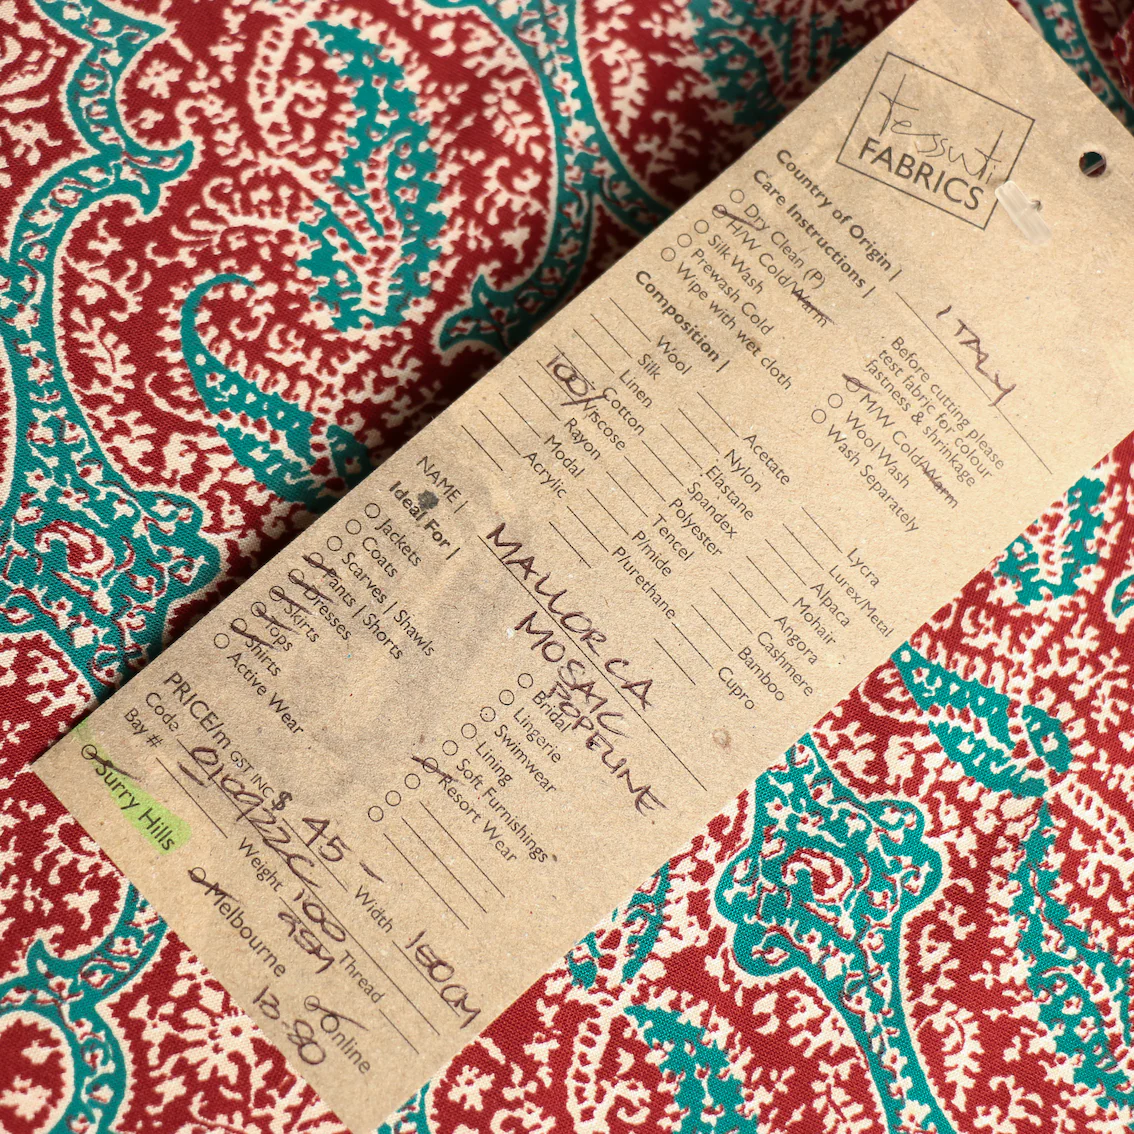 tessuti
FABRICS
Country of Origin | ITALY
Care Instructions |
Dry Clean (P)
H/W Cold/Warm
Silk Wash
Prewash Cold
Wipe with wet cloth
Before cutting please
test fabric for colour
fastness & shrinkage
M/W Cold/Warm
Wool Wash
Wash Separately
Composition |
Wool
Silk
Linen
100% Cotton
Viscose
Rayon
Modal
Acrylic
Acetate
Nylon
Elastane
Spandex
Polyester
Tencel
P/mide
P/urethane
Lycra
Lurex/Metal
Alpaca
Mohair
Angora
Cashmere
Bamboo
Cupro
NAME | MALLORCA
MOSAIC
POPELINE
Ideal For |
Jackets
Coats
Scarves | Shawls
Pants | Shorts
Dresses
Skirts
Tops
Shirts
Active Wear
Bridal
Lingerie
Swimwear
Lining
Soft Furnishings
Resort Wear
PRICE/m GST INC $ 45 -
Width 150CM
Code 0109222C
Weight 100
GSM
Thread
Bay #
Surry Hills
Melbourne
Online